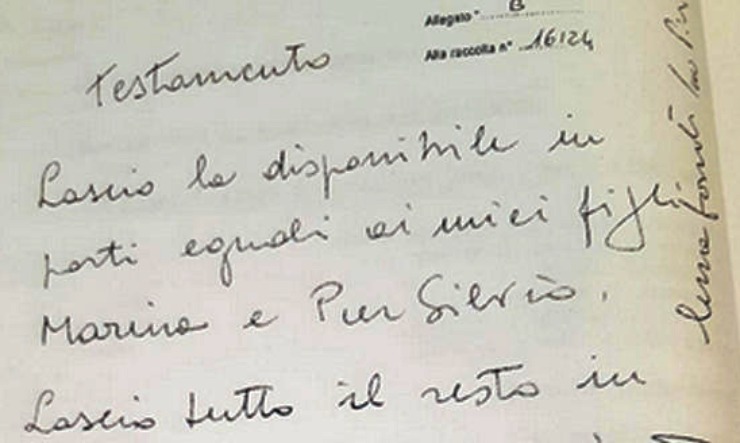 Allegato "B"
Alla raccolta n° 16124
Testamento
Lascio la disponibile in
parti eguali ai miei figli
Marina e Pier Silvio.
Lascio tutto il resto in